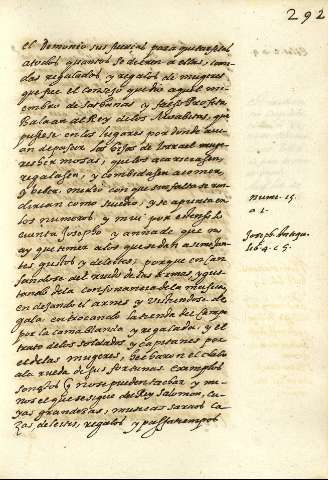 292
el Demonio sus furias para que
a todos quantos se dieren a ellas, comi
das regalados, y regalos de mugeres
que fue el consejo que dio aquel mi
embro de Satanas y falso Profeta
Balaan al Rey de los Moabitas, que
pusiese en los lugares por donde avi
an de pasar los hijos de Israel muge
res hermosas; que los acariciasen,
regalasen, y combidasen a comer,
y beber, medio con que sin falta se ren
dirian como sucedio; y se apunta en
los numeros, y mui por extenso lo
cuenta Josepho y annade que no
ay que temer a los que se dan a semejan
tes gustos y deleites; porque en can
sandose del ruido de las armas, y gus
tando de la consonancia de la musica,
en dejando el arnes y vistiendose de
gala, en trocando la tienda del campo
por la cama blanda y regalada, y el
trato de los soldados y capitanes por
el de las mugeres, hecharon el clabo
a la rueda de sus fortunas. Exemplos
son estos q no se pueden tachar y me
nos el que se sigue del Rey Salomon, cu
yas grandezas, musicas saraos ca
zas deleites, regalos y passatiempos
nume. 25.
a 1.
Joseph.
lib. 4. c 5.